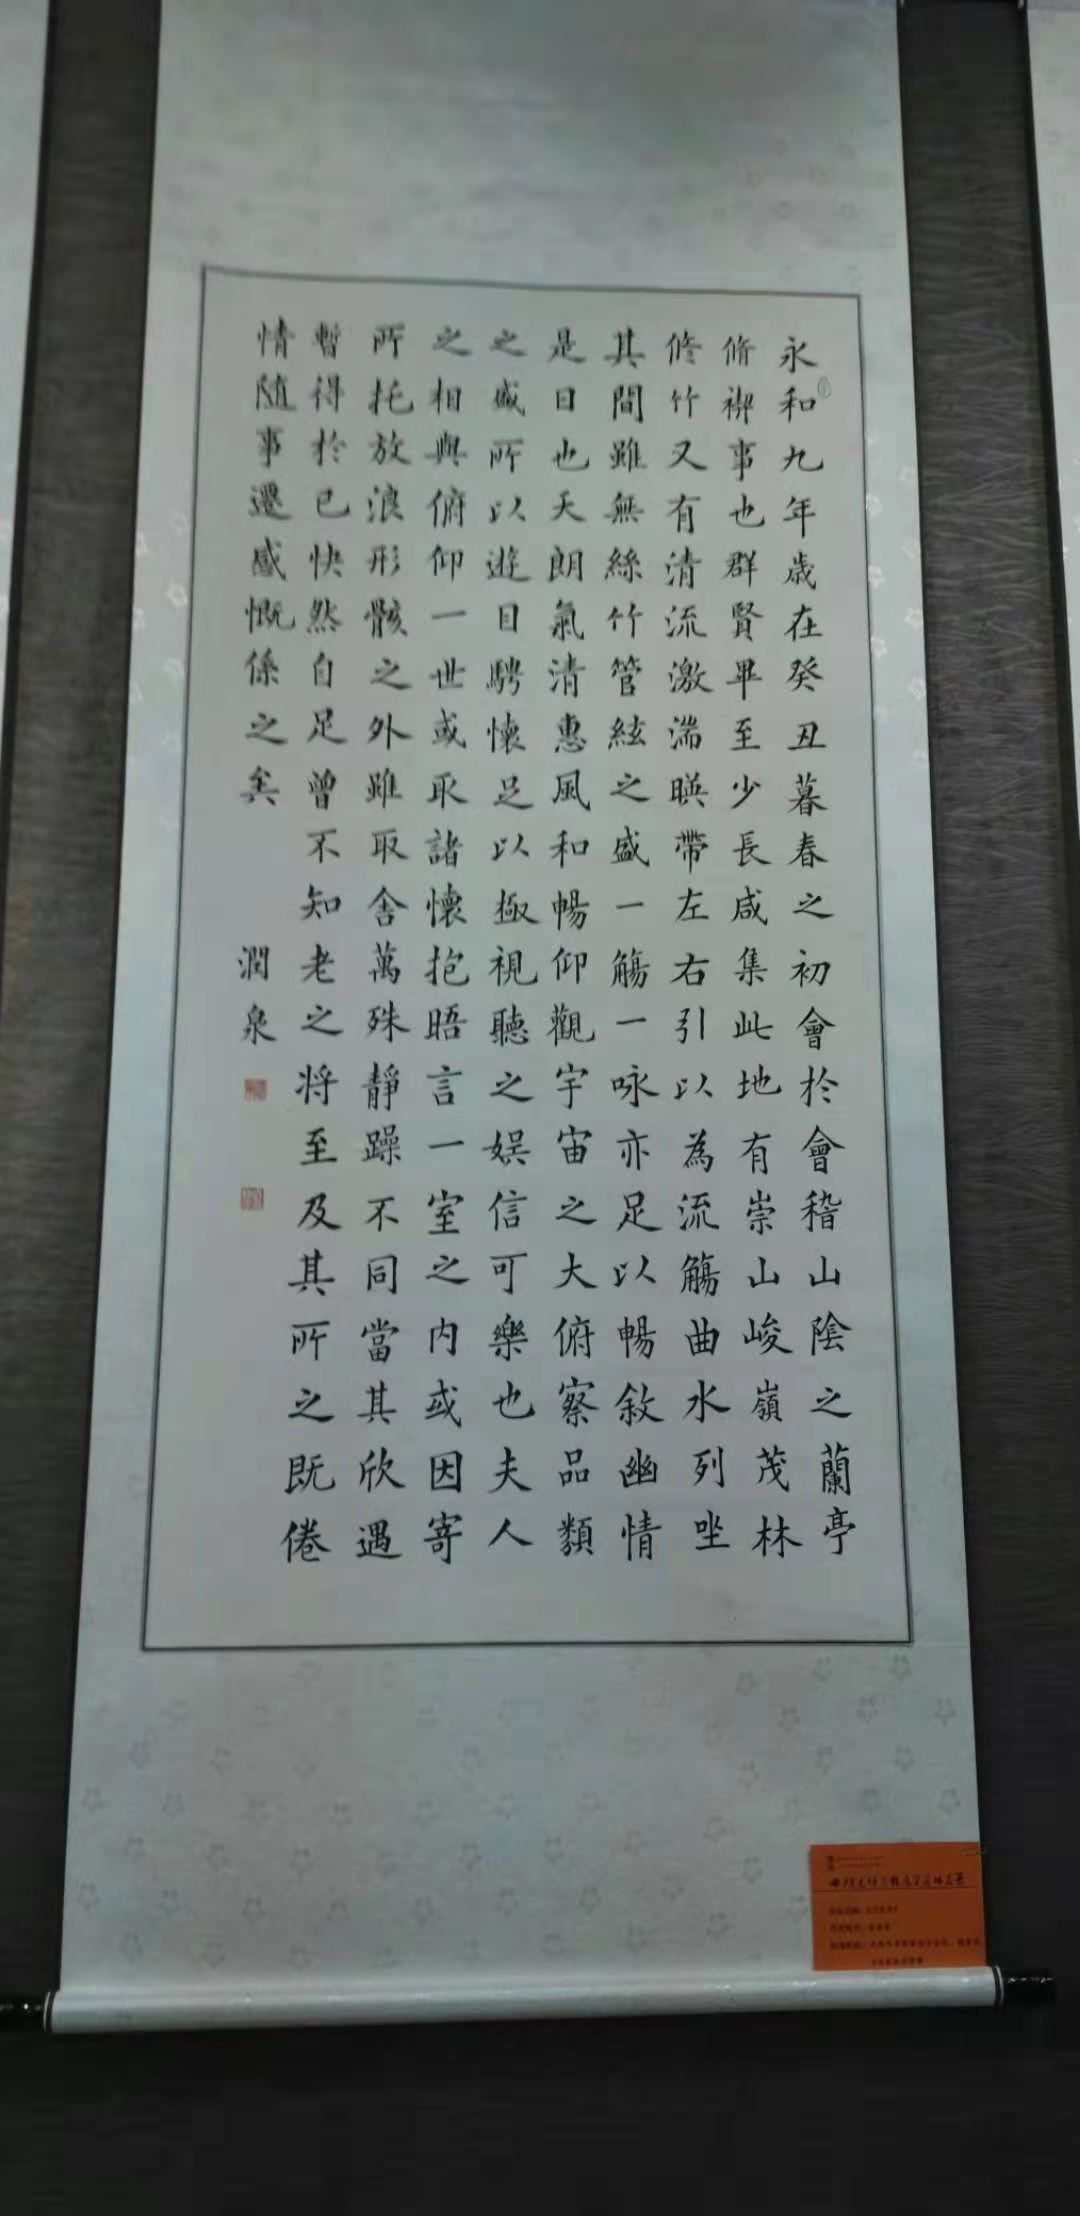 永和九年歲在癸丑暮春之初會於會稽山陰之蘭亭
脩禊事也群賢畢至少長咸集此地有崇山峻嶺茂林
修竹又有清流激湍暎帶左右引以為流觴曲水列坐
其間雖無絲竹管絃之盛一觴一咏亦足以暢敘幽情
是日也天朗氣清惠風和暢仰觀宇宙之大俯察品類
之盛所以遊目騁懷足以極視聽之娛信可樂也夫人
之相與俯仰一世或取諸懷抱晤言一室之内或因寄
所托放浪形骸之外雖取舍萬殊靜躁不同當其欣遇
暫得於己快然自足曾不知老之将至及其所之既倦
情随事遷感慨係之矣
潤泉